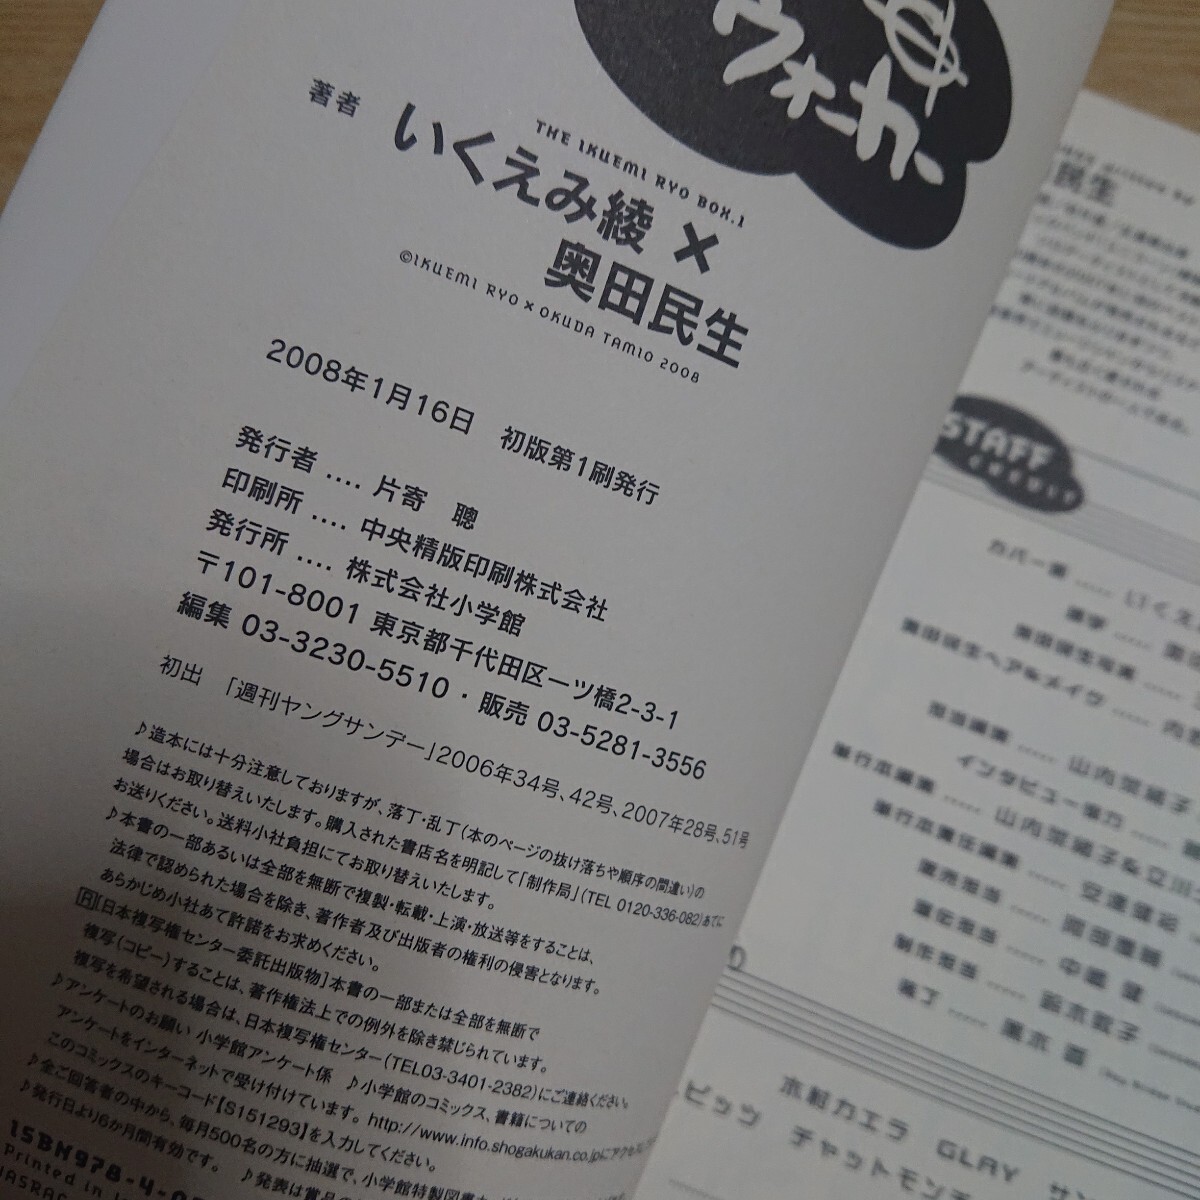 ウォーカー
THE IKUEMI RYO BOX.1
著者 いくえみ綾 ×
奥田民生
©IKUEMI RYO × OKUDA TAMIO 2008
2008年1月16日 初版第1刷発行
発行者 .... 片寄 聰
印刷所 .... 中央精版印刷株式会社
発行所 .... 株式会社小学館
〒101-8001 東京都千代田区一ツ橋2-3-1
編集 03-3230-5510・販売 03-5281-3556
初出 「週刊ヤングサンデー」2006年34号、42号、2007年28号、51号
♪造本には十分注意しておりますが、落丁・乱丁(本のページの抜け落ちや順序の間違い)の
場合はお取り替えいたします。購入された書店名を明記して「制作局」(TEL 0120-336-082)あてに
お送りください。送料小社負担にてお取り替えいたします。
♪本書の一部あるいは全部を無断で複製・転載・上演・放送等をすることは、
法律で認められた場合を除き、著作者及び出版者の権利の侵害となります。
あらかじめ小社あて許諾をお求めください。
R[日本複写権センター委託出版物]本書の一部または全部を無断で
複写(コピー)することは、著作権法上での例外を除き禁じられています。
複写を希望される場合は、日本複写権センター(TEL03-3401-2382)にご連絡ください。
♪アンケートのお願い 小学館アンケート係 ♪小学館のコミックス、書籍についての
アンケートをインターネットで受け付けています。 http://www.info.shogakukan.co.jpにアクセス
このコミックスのキーコード【S151293】を入力してください。
♪全ご回答者の中から、毎月500名の方に抽選で、小学館特製図書
♪発行日より6か月間有効です。 ♪発表は賞品の
ISBN978-4-09
Printed in
JASRAC
民生
STAFF
CREDIT
カバー画 ----- いくえ
題字 -----
奥田民生写真
奥田民生ヘア&メイク ----- 内
担当編集 ----- 山内菜緒子
インタビュー協力
単行本編集 ----- 山内菜緒子&立川
単行本責任編集
販売担当
宣伝担当 ----- 中
制作担当 ----- 鈴木敦子
装丁 ----- 黒木 香
木村カエラ GLAY
ピッツ チャットモン